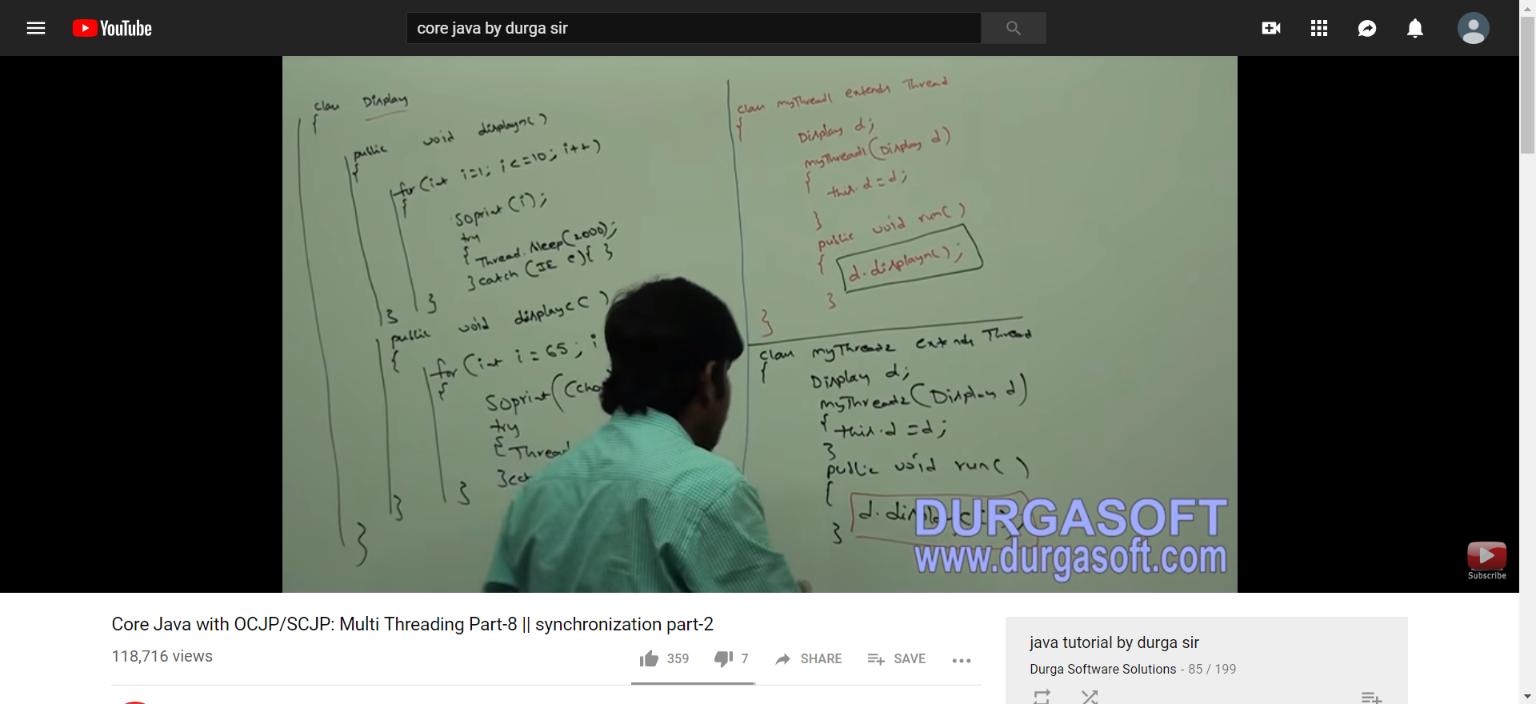 YouTube
core java by durga sir
class Display
{
public void displayn()
{
for(int i=1; i<=10; i++)
{
Soprint(i);
try
{ Thread.sleep(2000);
} catch (IE e){ }
}
}
public void displayc()
{
for(int i=65; i
{
Soprint((cha
try
{ Thread
}cat
}
}
}
class myThread1 extends Thread
{
Display d;
myThread1(Display d)
{
this.d=d;
}
public void run()
{ d.displayn();
}
}
class myThread2 extends Thread
{
Display d;
myThread2(Display d)
{ this.d=d;
}
public void run()
{
}
DURGASOFT
www.durgasoft.com
Subscribe
Core Java with OCJP/SCJP: Multi Threading Part-8 || synchronization part-2
118,716 views
359 7 SHARE SAVE ...
java tutorial by durga sir
Durga Software Solutions - 85 / 199